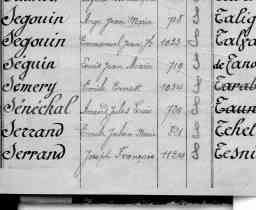 Segouin Ange Jean Marie 718 S Talig
Segouin Emmanuel Jean 1023 S
Séguin Louis Jean Marie 719 S de Tano
Semery Emile Ernest 1024 S Tarab
Sénéchal Amand Jules Louis 720 S Taun
Serrand Emile Julien Marie 721 S Tehel
Serrand Joseph François 1124 S Tesni